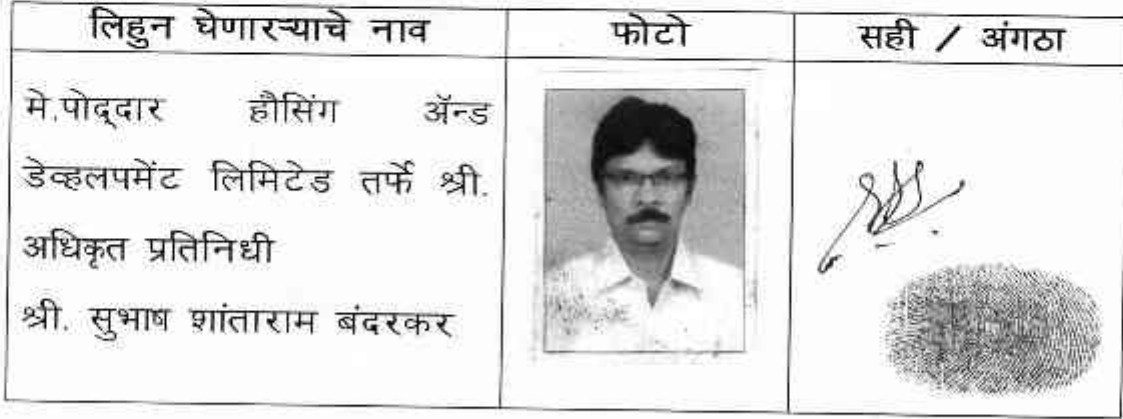 लिहुन घेणाऱ्याचे नाव
फोटो
सही / अंगठा
मे.पोद्दार हौसिंग ॲन्ड
डेव्हलपमेंट लिमिटेड तर्फे श्री.
अधिकृत प्रतिनिधी
श्री. सुभाष शांताराम बंदरकर